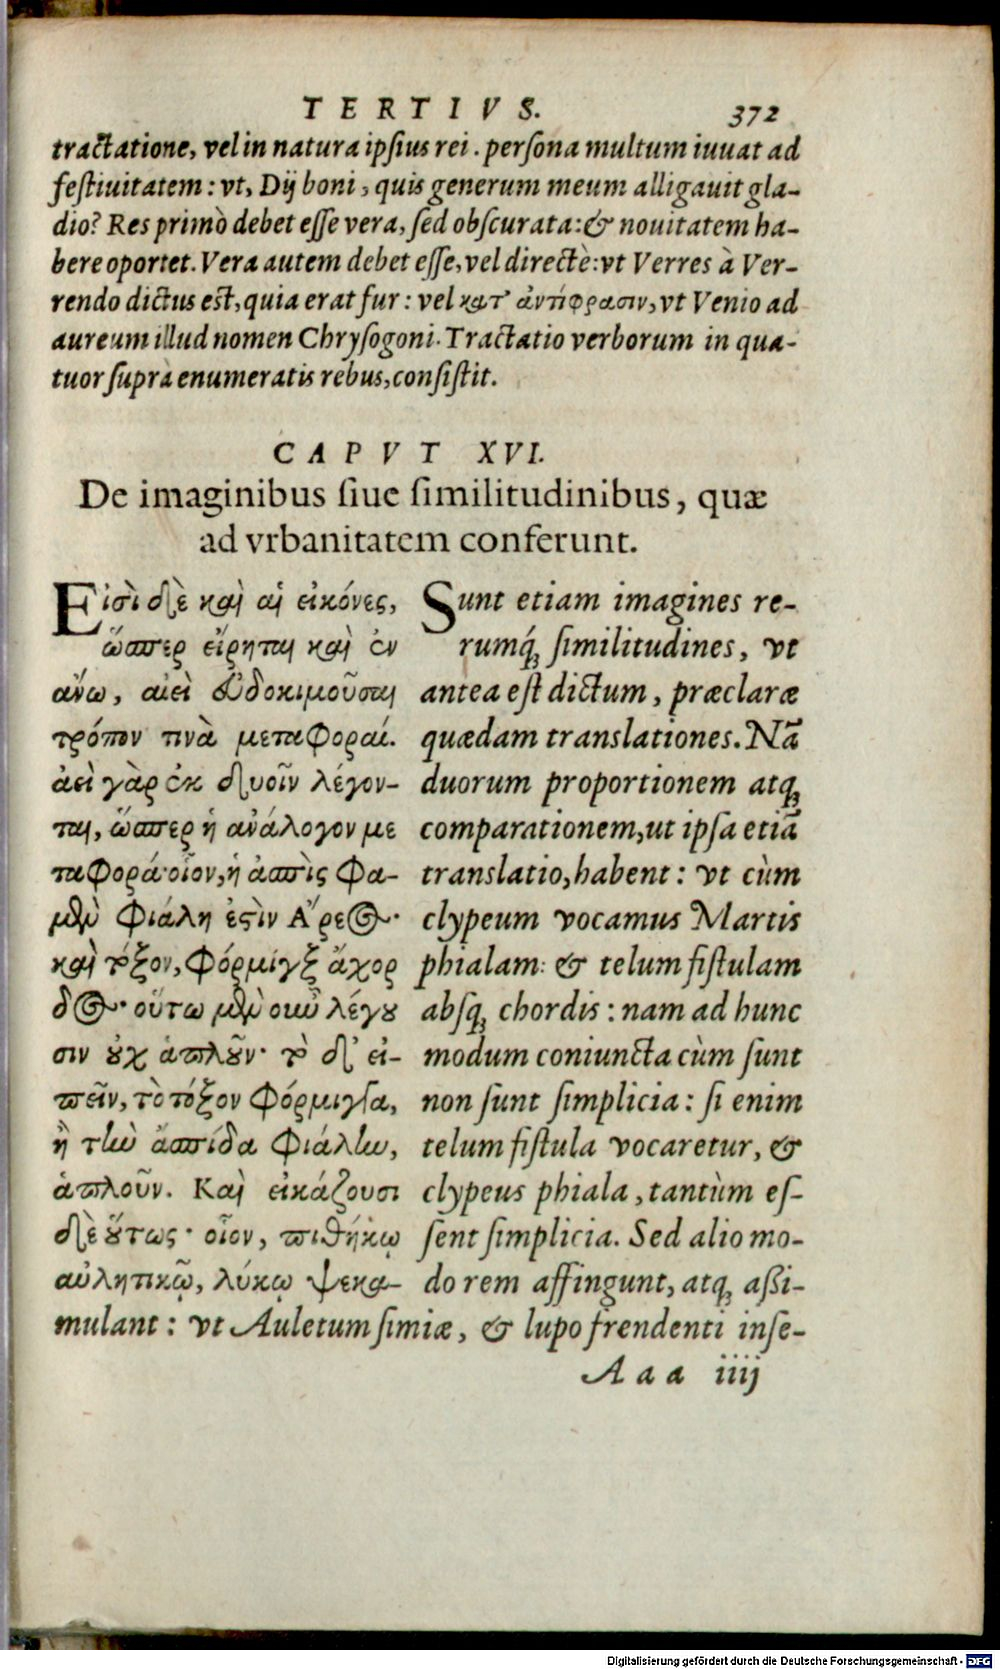 TERTIVS. 372
tractatione, vel in natura ipsius rei. persona multum iuuat ad
festiuitatem: vt, Dij boni, quis generum meum alligauit gla-
dio? Res primò debet esse vera, sed obscurata: & nouitatem ha-
bere oportet. Vera autem debet esse, vel directè: vt Verres à Ver-
rendo dictus est, quia erat fur: vel κατ᾽ ἀντίφρασιν, vt Venio ad
aureum illud nomen Chrysogoni. Tractatio verborum in qua-
tuor suprà enumeratis rebus, consistit.
CAPVT XVI.
De imaginibus siue similitudinibus, quæ
ad vrbanitatem conferunt.
Εἰσὶ δὲ καὶ αἱ εἰκόνες,
ὥσπερ εἴρηται καὶ ἐν
ἄνω, αἰεὶ εὐδοκιμοῦσαι
τρόπον τινὰ μεταφοραί.
ἀεὶ γὰρ ἐκ δυοῖν λέγον-
ται, ὥσπερ ἡ ἀνάλογον με
ταφορά· οἷον, ἡ ἀσπὶς φα-
μὲν φιάλη ἐστὶν Ἄρεος·
καὶ τόξον, φόρμιγξ ἄχορ
δος· οὕτω μὲν οὖν λέγου
σιν οὐχ ἁπλοῦν· τὸ δ᾽ εἰ-
πεῖν, τὸ τόξον φόρμιγγα,
ἢ τὴν ἀσπίδα φιάλην,
ἁπλοῦν. Καὶ εἰκάζουσι
δὲ οὕτως· οἷον, πιθήκῳ
αὐλητικῷ, λύκῳ ψεκα-
Sunt etiam imagines re-
rumq́; similitudines, vt
antea est dictum, præclaræ
quædam translationes. Nã
duorum proportionem atq;
comparationem, ut ipsa etiã
translatio, habent: vt cùm
clypeum vocamus Martis
phialam: & telum fistulam
absq; chordis: nam ad hunc
modum coniuncta cùm sunt
non sunt simplicia: si enim
telum fistula vocaretur, &
clypeus phiala, tantùm es-
sent simplicia. Sed alio mo-
do rem affingunt, atq; aßi-
mulant: vt Auletum simiæ, & lupo frendenti inse-
Aaa iiij
Digitalisierung gefördert durch die Deutsche Forschungsgemeinschaft - DFG